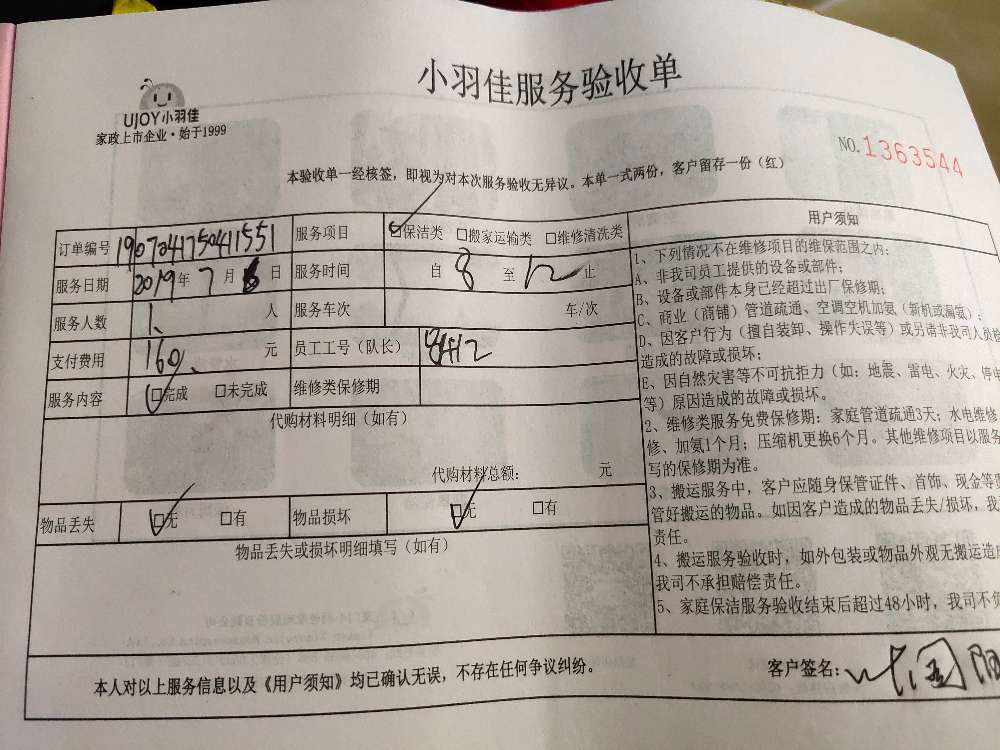 小羽佳服务验收单
UJOY小羽佳
家政上市企业·始于1999
NO.1363544
本验收单一经核签，即视为对本次服务验收无异议。本单一式两份，客户留存一份（红）
订单编号 1907041750411551 服务项目 ☑保洁类 □搬家运输类 □维修清洗类
服务日期 2019年 7月 6日 服务时间 自 8 至 12 止
服务人数 1、 人 服务车次 车/次
支付费用 160、 元 员工工号（队长）
服务内容 ☑完成 □未完成 维修类保修期
代购材料明细（如有）
代购材料总额： 元
物品丢失 ☑无 □有 物品损坏 ☑无 □有
物品丢失或损坏明细填写（如有）
用户须知
1、下列情况不在维修项目的维保范围之内：
A、非我司员工提供的设备或部件；
B、设备或部件本身已经超过出厂保修期；
C、商业（商铺）管道疏通、空调空机加氨（新机或漏氨）；
D、因客户行为（擅自装卸、操作失误等）或另请非我司人员检
造成的故障或损坏；
E、因自然灾害等不可抗拒力（如：地震、雷电、火灾、停电
等）原因造成的故障或损坏。
2、维修类服务免费保修期：家庭管道疏通3天；水电维修
修、加氨1个月；压缩机更换6个月。其他维修项目以服务
写的保修期为准。
3、搬运服务中，客户应随身保管证件、首饰、现金等
管好搬运的物品。如因客户造成的物品丢失/损坏，我
责任。
4、搬运服务验收时，如外包装或物品外观无搬运造
我司不承担赔偿责任。
5、家庭保洁服务验收结束后超过48小时，我司不
本人对以上服务信息以及《用户须知》均已确认无误，不存在任何争议纠纷。
客户签名：